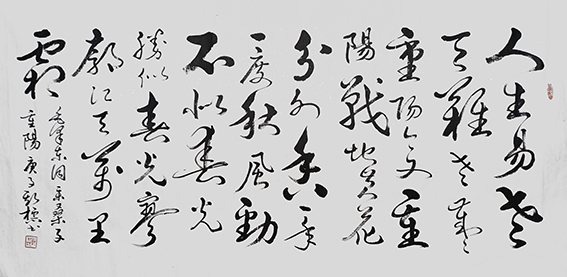 人生易老
天難老歲々
重陽今又重
陽戰地黃花
分外香一年
一度秋風勁
不似春光
勝似春光寥
廓江天萬里
霜
毛澤東詞采桑子
重陽 庚子 書